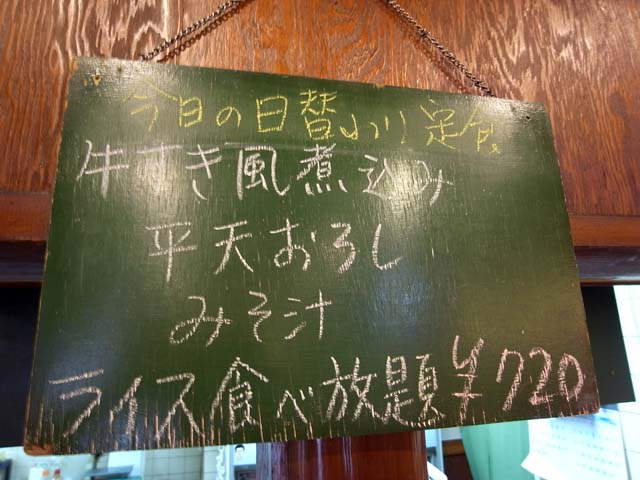 今日の日替わり定食
牛すき風煮込み
平天おろし
みそ汁
ライス食べ放題¥720